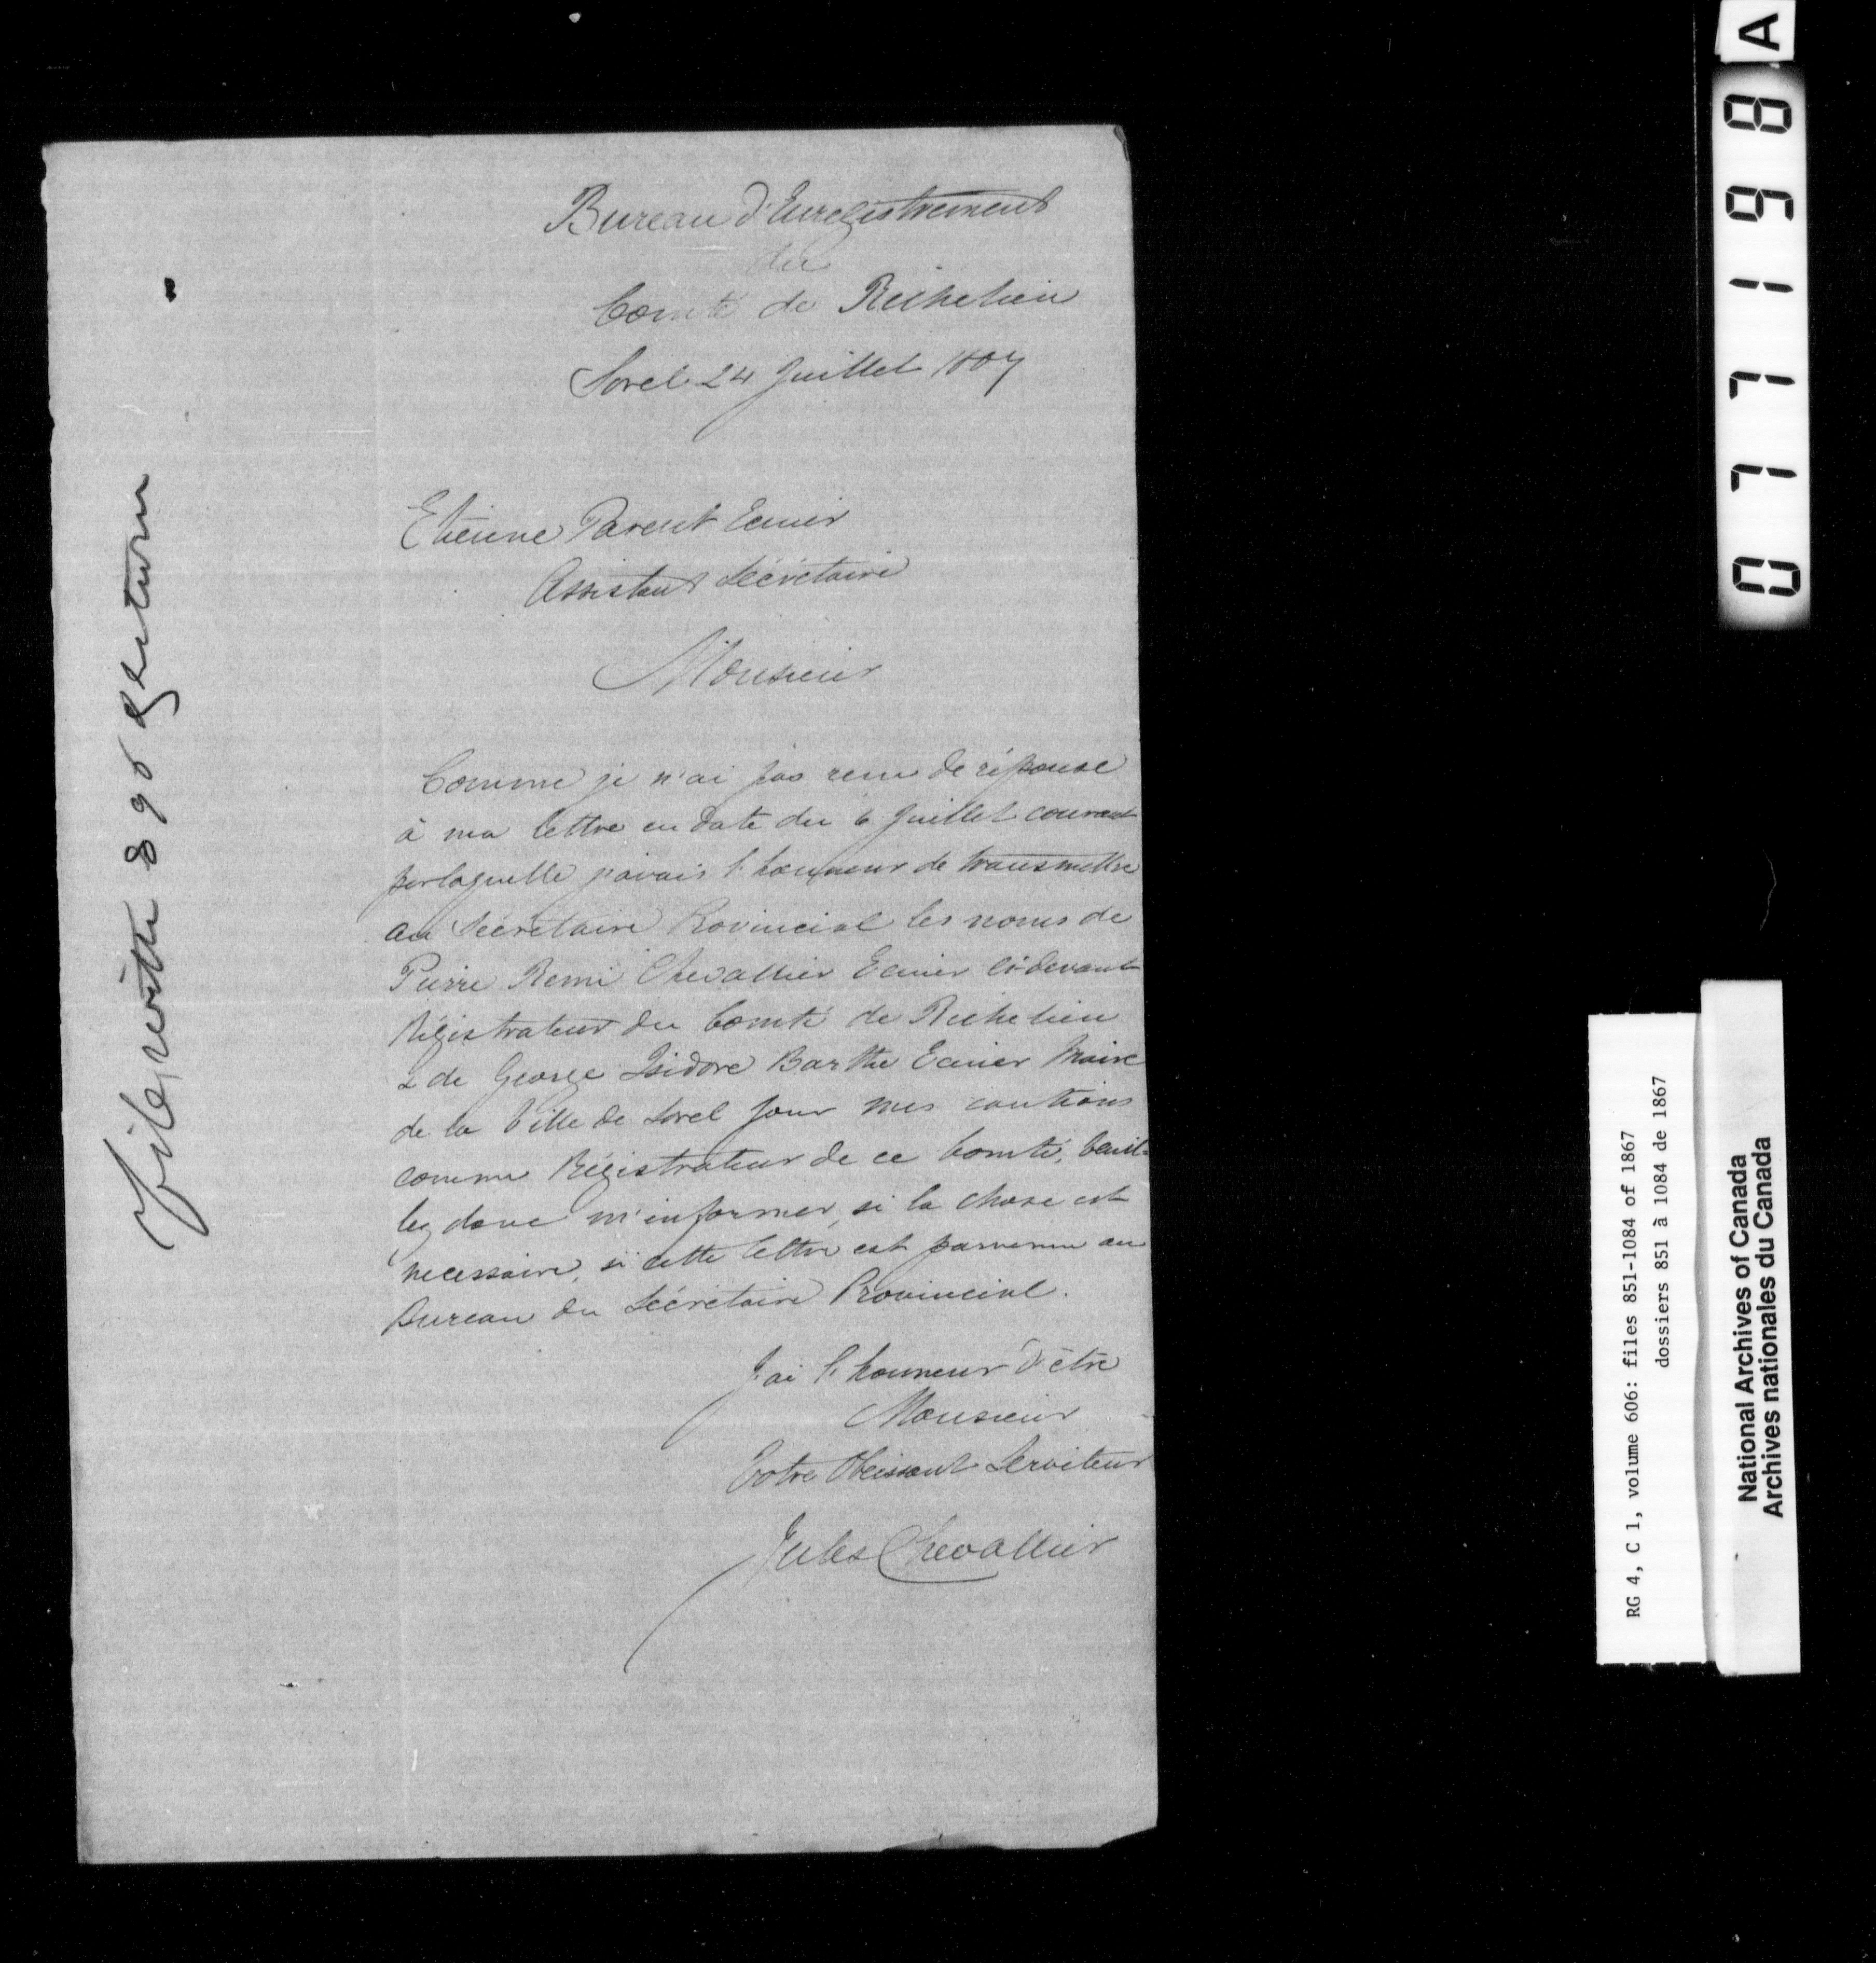 Bureau d'Enregistrement
du
Comté de Richelieu
Sorel 24 Juillet 1867
Etienne Parent Ecuier
Assistant Sécrétaire
Monsieur
Comme je n'ai pas recu de réponse
à ma lettre en date du 6 Juillet courant
par laquelle j'avais l'honneur de transmettre
au Sécrétaire Provincial les noms de
Pierre Remi Chevallier Ecuier ci-devant
Régistrateur du Comté de Richelieu
& de George Isidore Barthe Ecuier Maire
de la Ville de Sorel pour mes cautions
comme Régistrateur de ce Comté, veuil-
lez donc m'informer, si la chose est
necessaire, si cette lettre est parvenue au
Bureau du Sécrétaire Provincial.
J'ai l'honneur d'être
Monsieur
Votre Obeissant Serviteur
Jules Chevallier
File with 890 & return
077198 A
RG 4, C 1, volume 606: files 851-1084 of 1867
dossiers 851 à 1084 de 1867
National Archives of Canada
Archives nationales du Canada